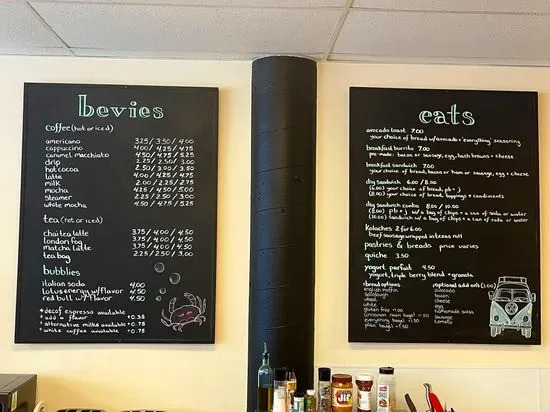 bevies
coffee (hot or iced)
americano 3.25 / 3.50 / 4.00
cappuccino 4.00 / 4.25 / 4.75
caramel macchiato 4.50 / 4.75 / 5.25
drip 2.25 / 2.50 / 3.00
hot cocoa 2.50 / 3.00 / 3.50
latte 4.00 / 4.25 / 4.75
milk 2.00 / 2.25 / 2.75
mocha 4.25 / 4.50 / 5.00
steamer 2.25 / 2.50 / 3.00
white mocha 4.50 / 4.75 / 5.25
tea (hot or iced)
chai tea latte 3.75 / 4.00 / 4.50
london fog 3.75 / 4.00 / 4.50
matcha latte 3.75 / 4.00 / 4.50
tea bag 2.25 / 2.50 / 3.00
bubblies
italian soda 4.00
lotus energy w/flavor 4.50
red bull w/ flavor 4.50
*decaf espresso available
*add a flavor +0.35
*alternative milks available +0.75
*white coffee available +0.75
eats
avocado toast 7.00
your choice of bread w/avocado + 'everything' seasoning
breakfast burrito 7.00
pre-made: bacon or sausage, egg, hash browns + cheese
breakfast sandwich 7.00
your choice of bread, bacon or ham or sausage, egg + cheese
diy sandwich 6.00 / 8.00
(6.00) your choice of bread, pb + j
(8.00) your choice of bread, toppings + condiments
diy sandwich combo 8.00 / 10.00
(8.00) pb + j w/ a bag of chips + a can of soda or water
(10.00) sandwich w/ a bag of chips + a can of soda or water
Kolaches 2 for 6.00
beef sausage wrapped in texas roll
pastries & breads price varies
quiche 3.50
yogurt parfait 4.50
yogurt, triple berry blend + granola
bread options
english muffin
sourdough
wheat
white
gluten free +1.00
cinnamon raisin bagel +1.50
everything bagel +1.50
plain bagel +1.50
optional add ons (1.00)
avocado
bacon
cheese
egg
homemade salsa
sausage
tomato
JIF